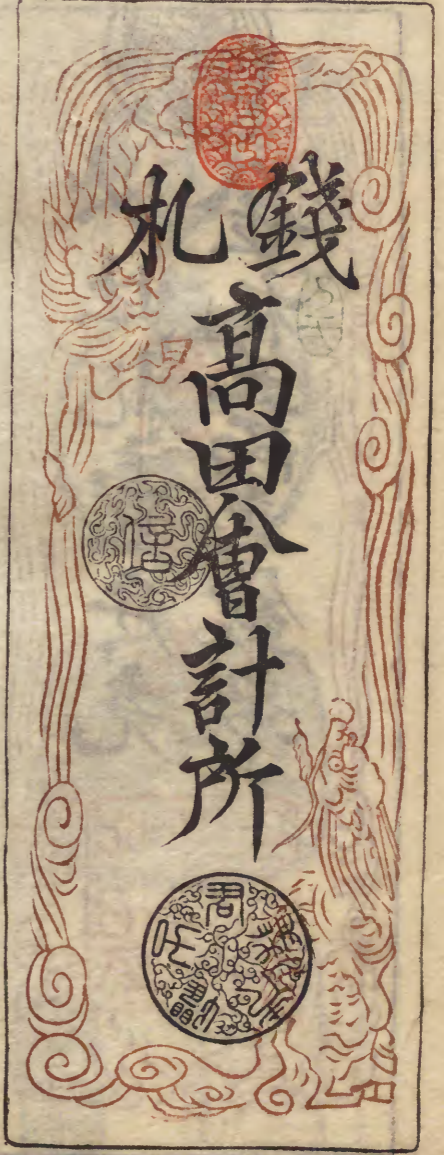 錢札
高田會計所
信